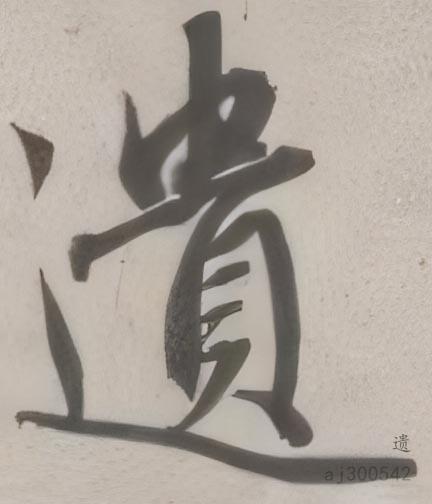 遺
遗
aj300542